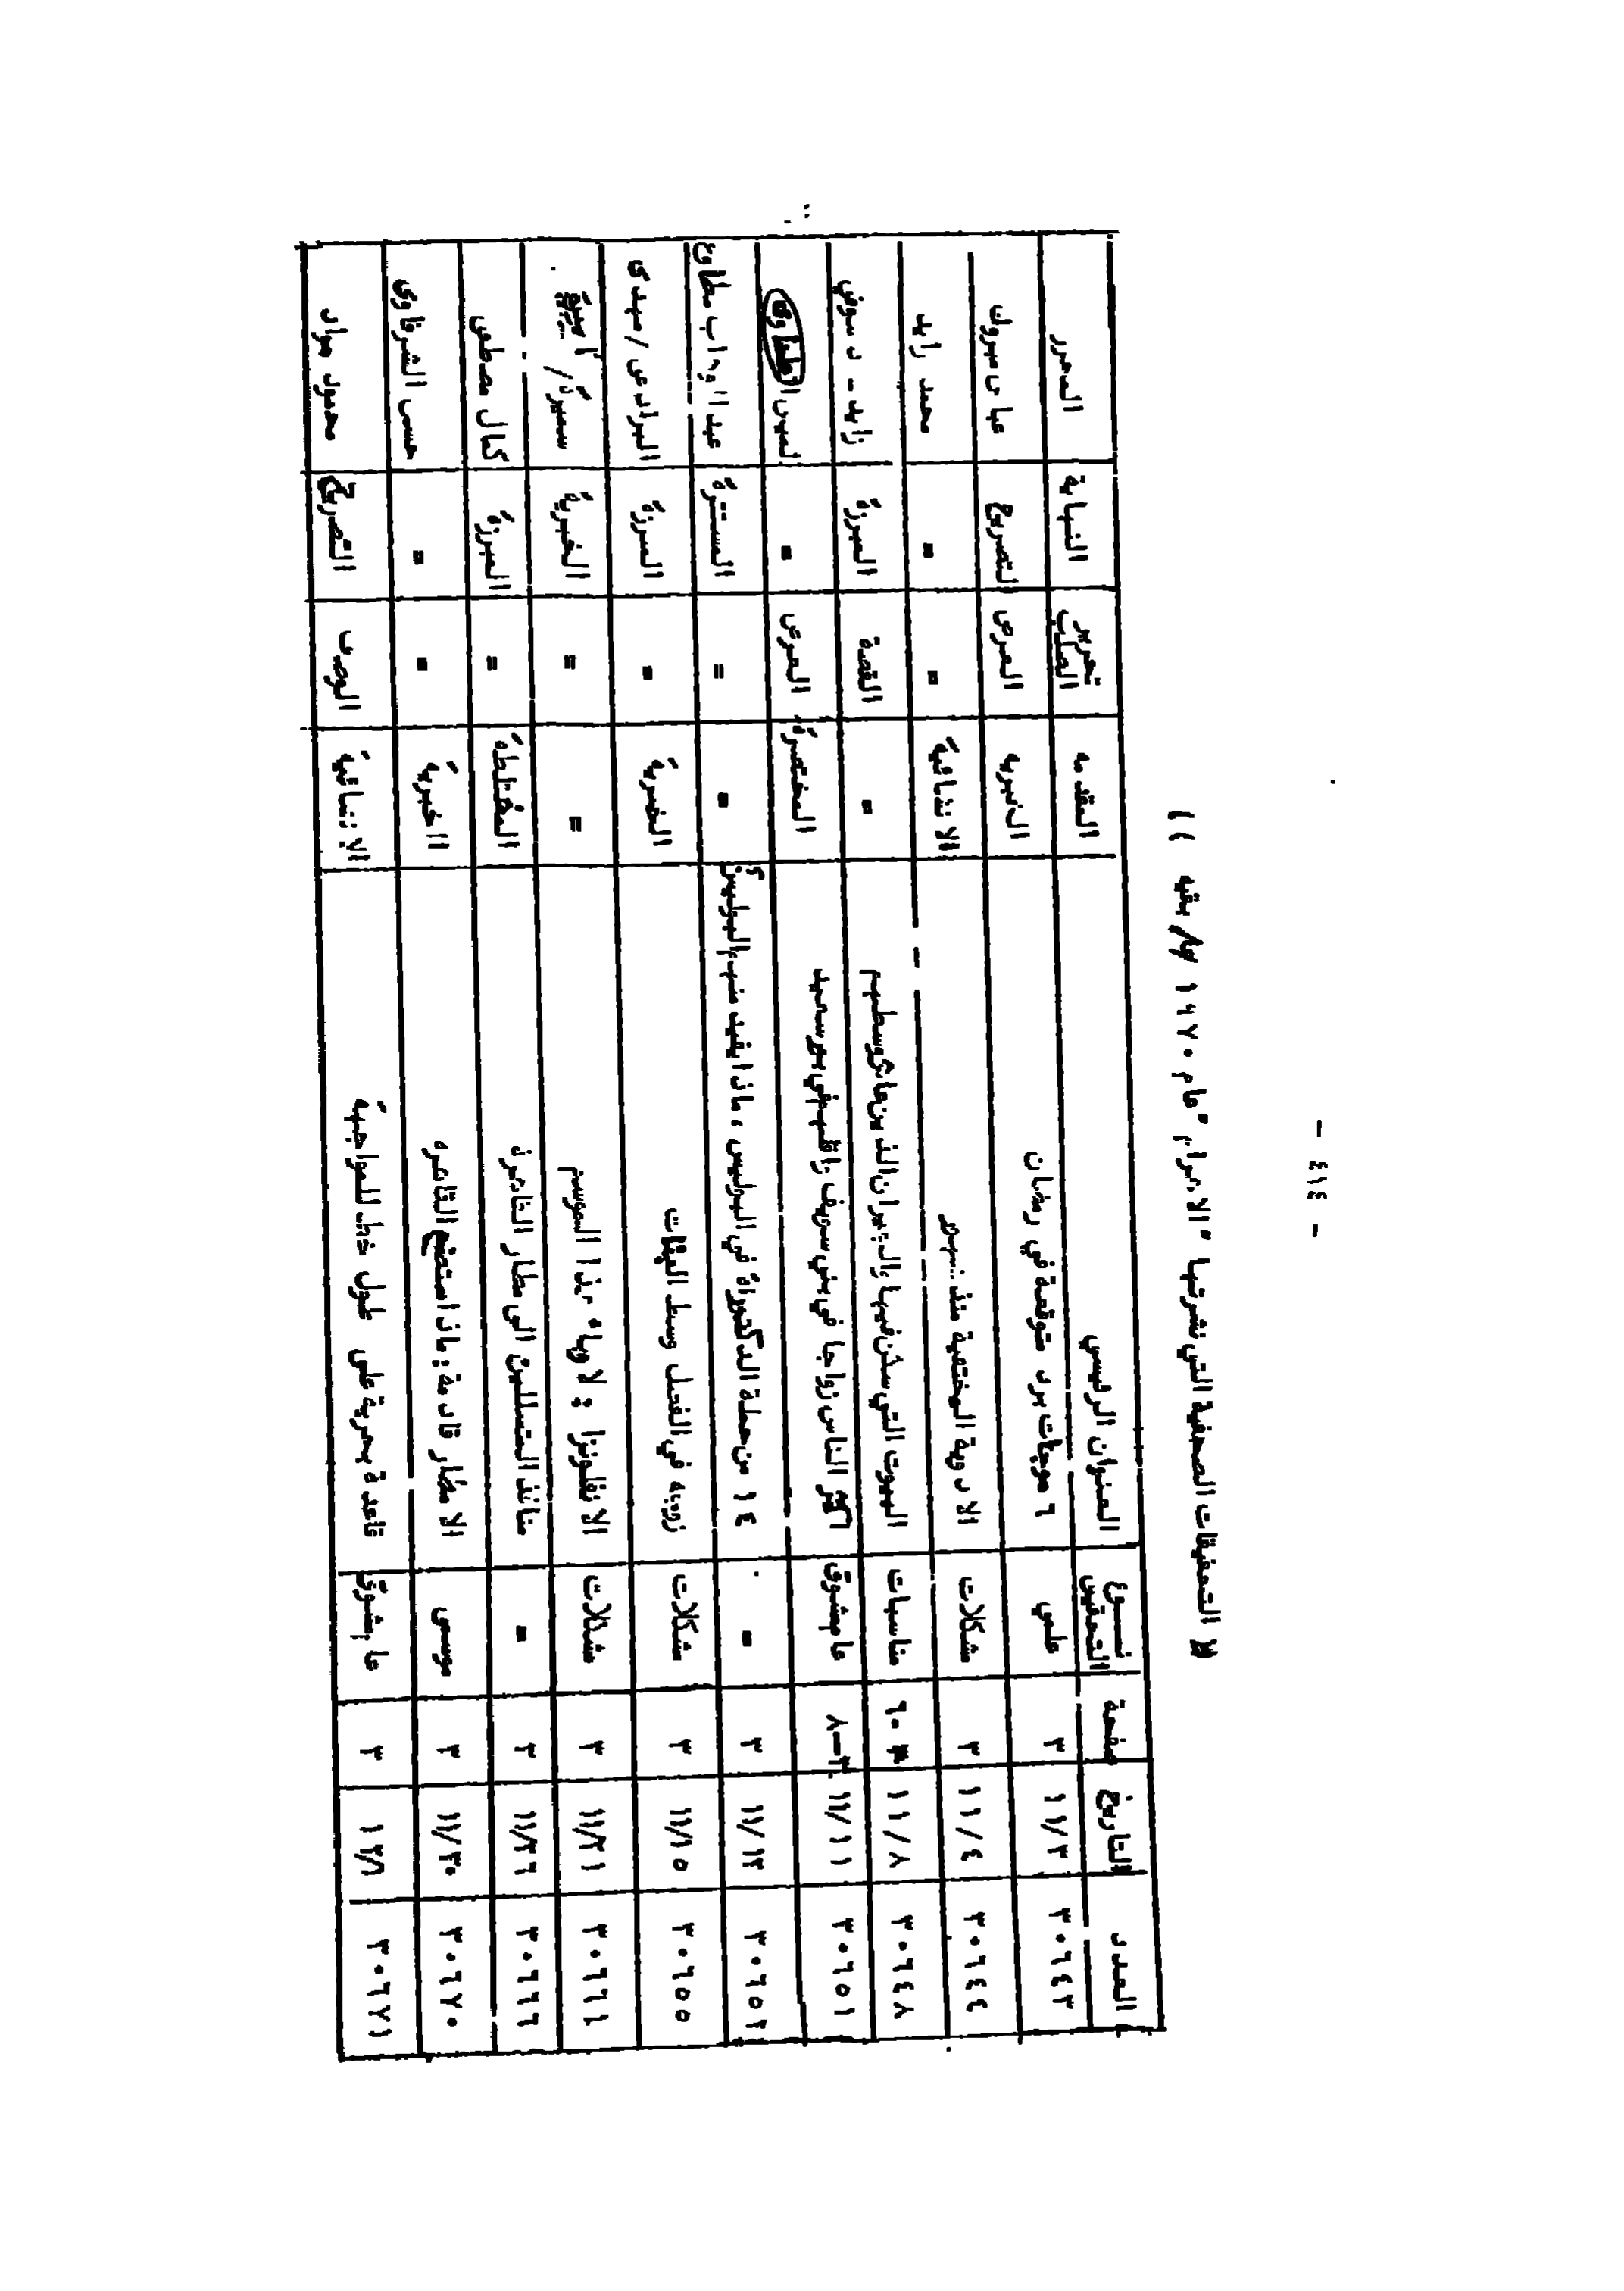 - ٤١٤ -
(( التحقيقات الصحفية التي نشرتها "الاهرام" عام ١٩٧٠ / بقيه ))
العدد التاريخ صفحة نوع التحقيق العنوان الرئيسي المقدمه تحرير الصلب النهاية المحرر
٣٠٦٤٣ ١١/٣ ٣ علمي ٦ موجات برد متوقعة في رمضان الخبريه العرض التصريح عباس مبروك
٣٠٦٤٤ ١١/٤ ٣ مشكلات الادوية المختفية منذ الانشائية = = محمد زايد
٣٠٦٤٨ ١١/٨ ٦-٣ مناسبات البيوت التي سكن فيها والجيران الذين عاش وسطهم = القصة المبرزة زايد - دسوقي
٣٠٦٥١ ١١/١١ ٣-٨ عام مشوق اكثر الناس زواجا في بني سويف واقلهم في بورسعيد المختصرة العرض = لميس الطحاوى
٣٠٦٥٢ ١١/١٢ ٣ = ١٤ من حملة الدكتوراة في البوليس، ماذا يفيد منهم البوليس = = عبد الوهاب مطاوع
٣٠٦٥٥ ١١/١٥ ٣ مشكلات زوجه في الفصل وسط البنات الخبرية = المبرزة البرادعى / مهدى
٣٠٦٦١ ١١/٢١ ٣ مشكلات الانفلونزا : لا وباء هذا الموسم = = الخبرية سميرة /
٣٠٦٦٦ ١١/٢٦ ٣ = منافذ المتسللين الى مطار القاهرة المختلطة = المبرزة كمال مصطفى
٣٠٦٧٠ ١١/٣٠ ٣ موسمى الامطار قادمة : ماذا ستصنع القاهره الخبرية = = حسن الشرقاوى
٣٠٦٧١ ١٢/١ ٣ عام مشوق قاعدة بحرية على طول خط المواجهة الانشائية الوصف التصريح محمود مراد